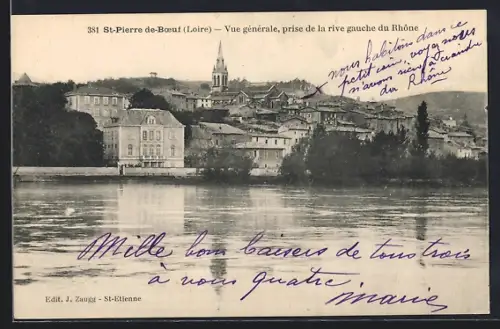 381 St-Pierre de-Bœuf (Loire) – Vue générale, prise de la rive gauche du Rhône
nous habitons dans ce
petit coin, voyez nous
n'avons rien à craindre
du Rhône
Mille bons baisers de tous trois
à vous quatre
Marie
Edit. J. Zaugg - St-Etienne